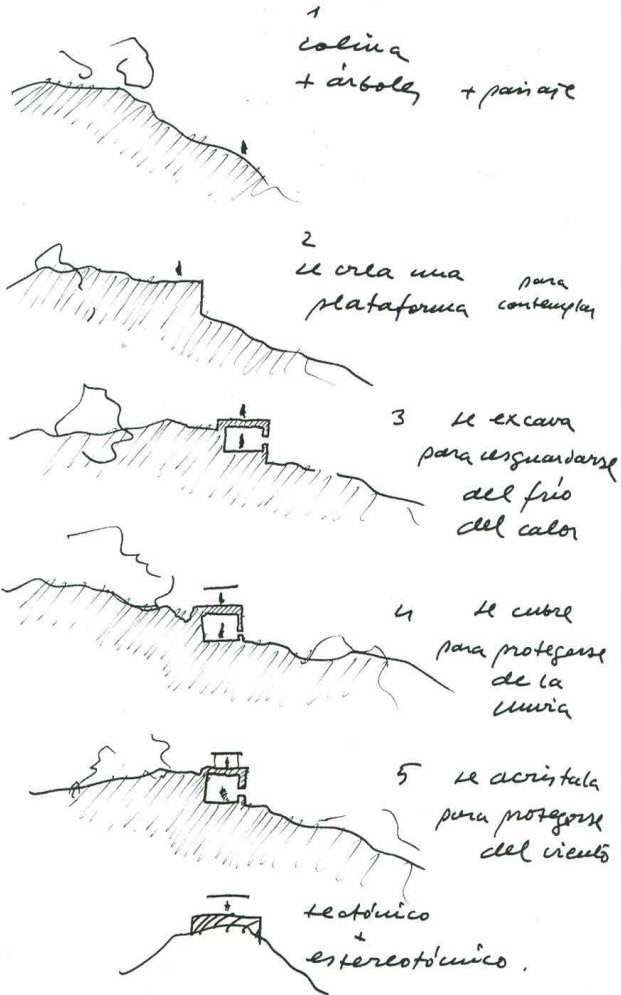 1
colina
+ árboles + paisaje
2
se crea una para
plataforma contemplar
3 se excava
para resguardarse
del frío
del calor
4 se cubre
para protegerse
de la
lluvia
5 se acristala
para protegerse
del viento
tectónico
+
estereotómico.